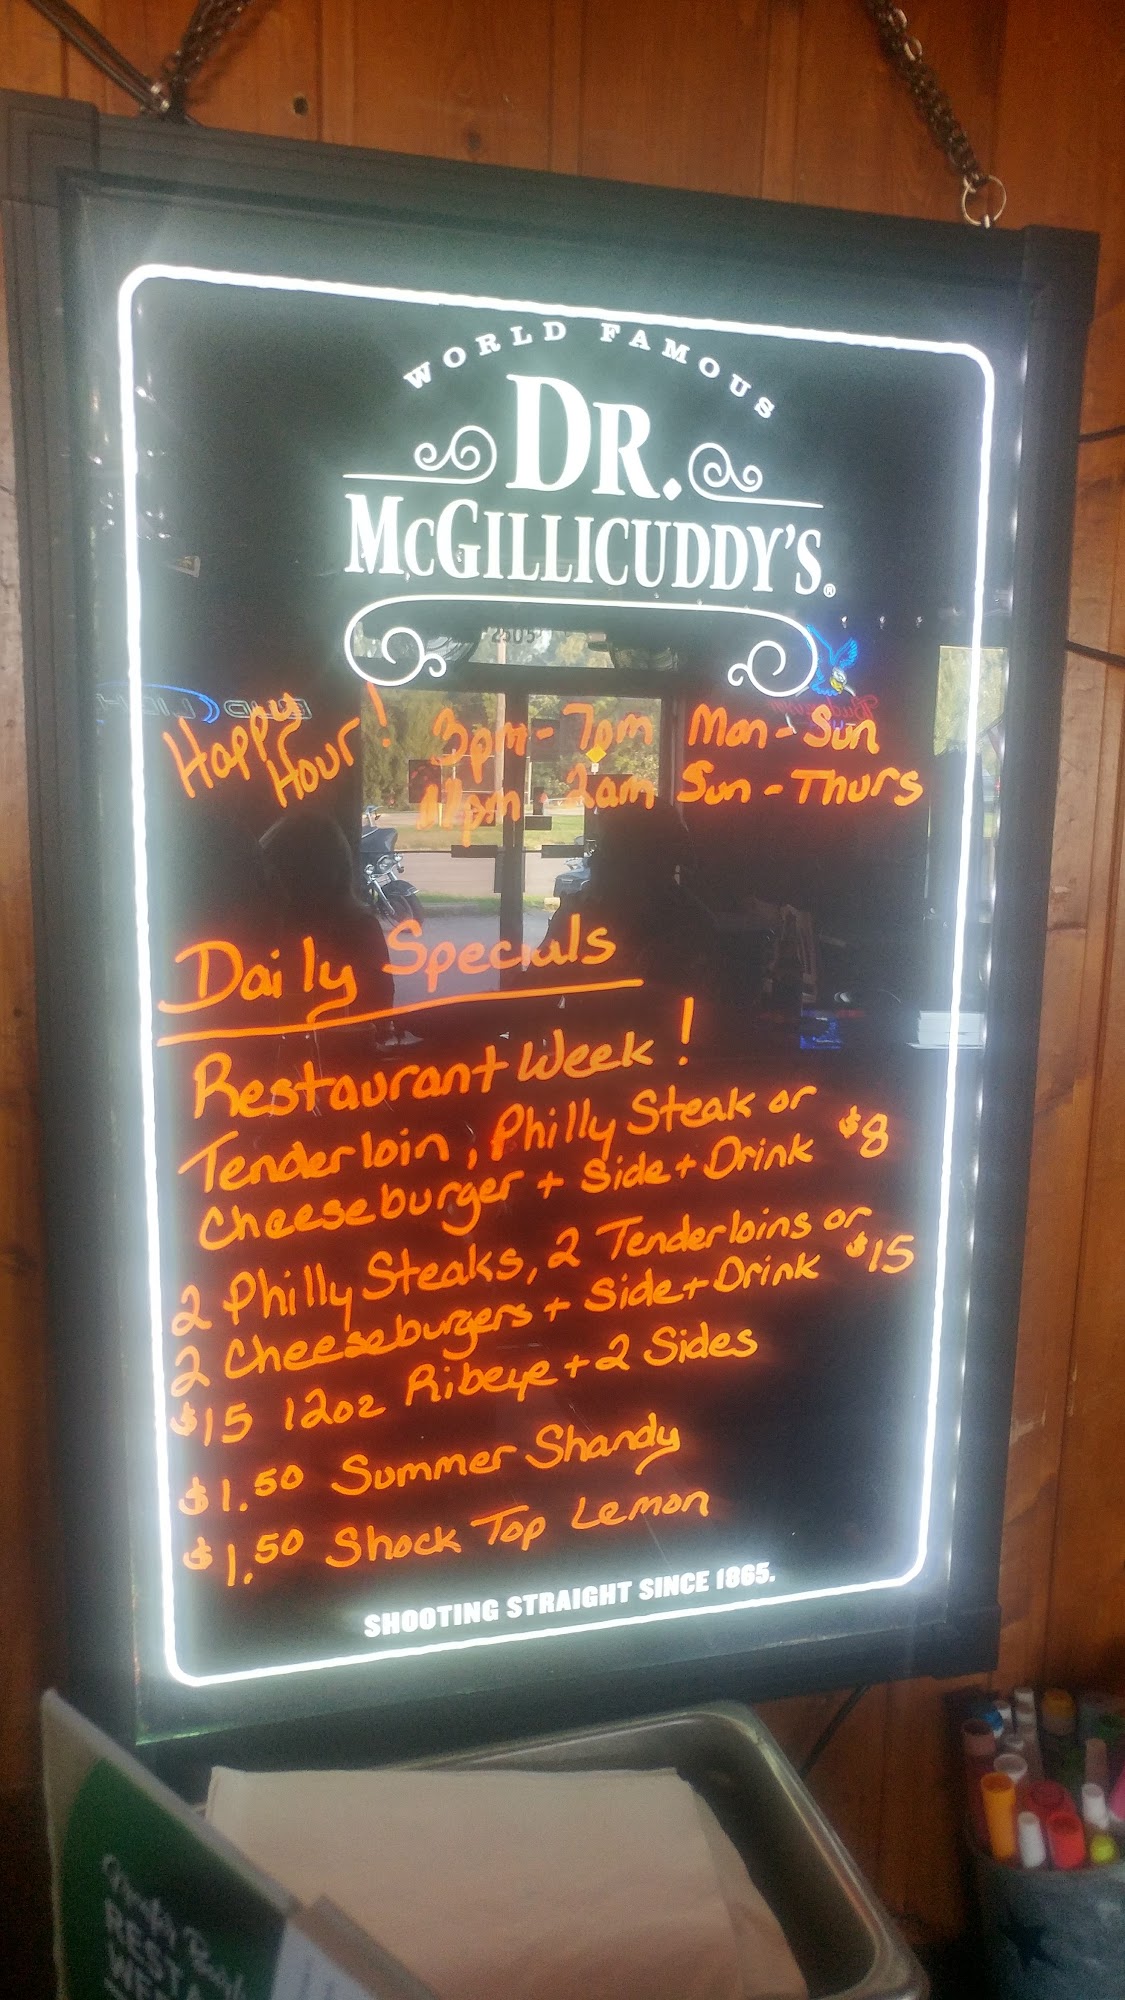 WORLD FAMOUS
DR.
McGILLICUDDY'S®
2505
Happy Hour! 3pm - 7pm Mon - Sun
11pm - 2am Sun - Thurs
Daily Specials
Restaurant Week!
Tenderloin, Philly Steak or
Cheeseburger + Side + Drink $8
2 Philly Steaks, 2 Tenderloins or
2 Cheeseburgers + Side + Drink $15
$15 12oz Ribeye + 2 Sides
$1.50 Summer Shandy
$1.50 Shock Top Lemon
SHOOTING STRAIGHT SINCE 1865.